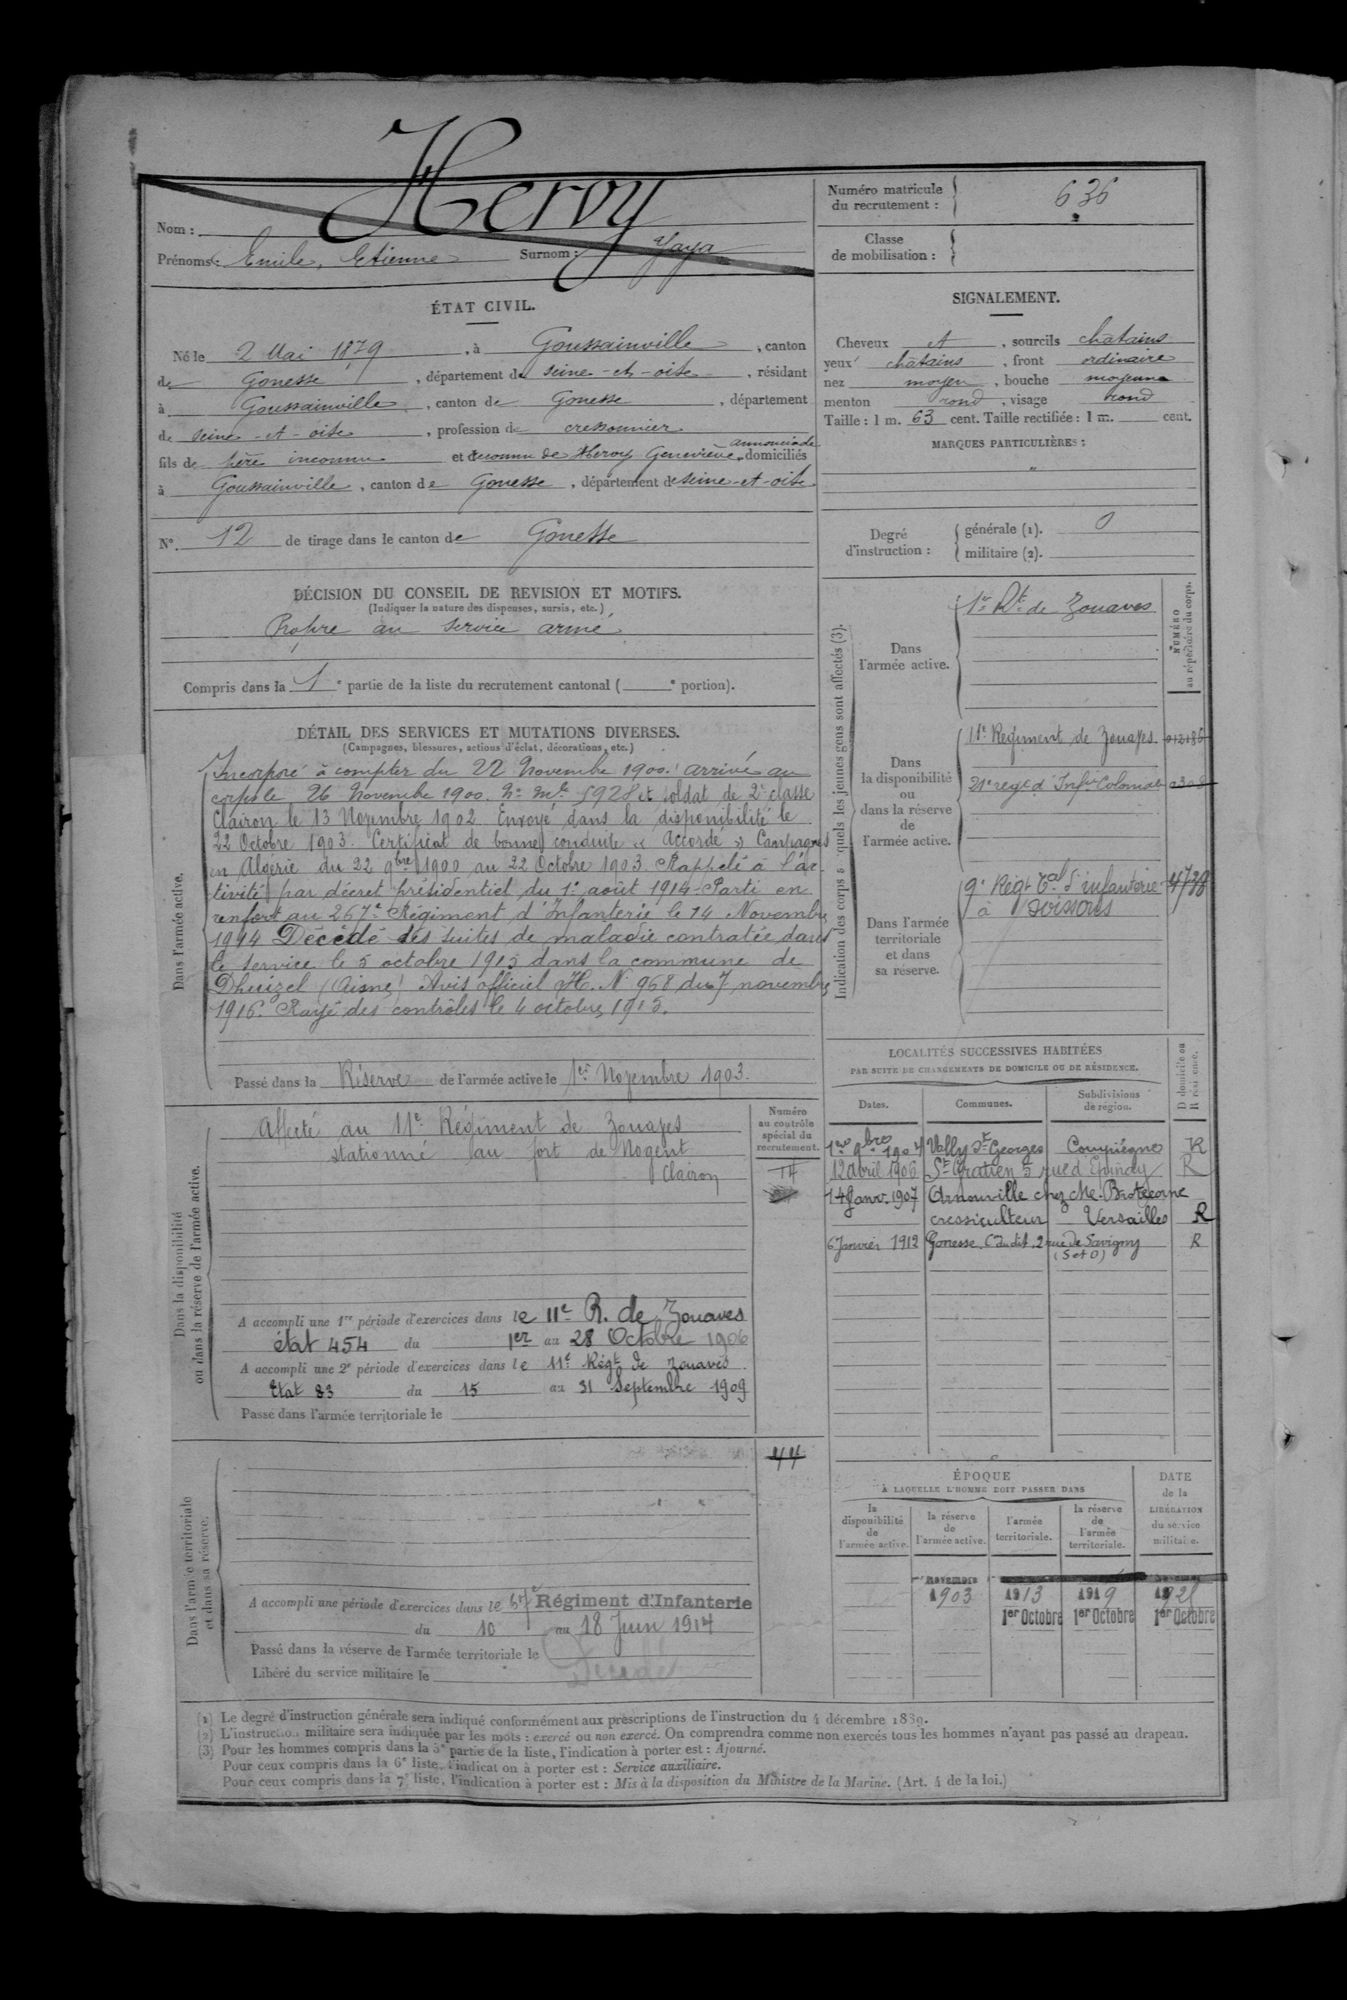 Hervy
Nom :
Prénoms : Emile, Etienne Surnom : Yaya
Numéro matricule du recrutement : 636
Classe de mobilisation :
ÉTAT CIVIL.
Né le 2 Mai 1879, à Goussainville, canton
de Gonesse, département de Seine-et-oise, résidant
à Goussainville, canton de Gonesse, département
de Seine-et-oise, profession de cressonnier
fils de père inconnu et de Hervoy Geneviève domiciliés
à Goussainville, canton de Gonesse, département de Seine-et-oise
N° 12 de tirage dans le canton de Gonesse
SIGNALEMENT.
Cheveux et, sourcils chatains
yeux chatains, front ordinaire
nez moyen, bouche moyenne
menton rond, visage rond
Taille : 1 m. 63 cent. Taille rectifiée : 1 m. cent.
MARQUES PARTICULIÈRES :
"
Degré d'instruction : générale (1). 0
militaire (2).
DÉCISION DU CONSEIL DE REVISION ET MOTIFS.
(Indiquer la nature des dispenses, sursis, etc.)
Propre au service armé
Compris dans la 1e partie de la liste du recrutement cantonal ( e portion).
DÉTAIL DES SERVICES ET MUTATIONS DIVERSES.
(Campagnes, blessures, actions d'éclat, décorations, etc.)
Dans l'armée active.
Incorporé à compter du 22 Novembre 1900. arrivé au
corps le 26 Novembre 1900. N° Mle 5928 et soldat de 2e classe
Clairon le 13 Novembre 1902. Envoyé dans la disponibilité le
22 Octobre 1903. Certificat de bonne conduite « Accordé » Campagnes
en Algérie du 22 9bre 1900 au 22 Octobre 1903. Rappelé à l'ac-
tivité par décret présidentiel du 1er août 1914. Parti en
renfort au 267e Régiment d'Infanterie le 14 Novembre
1914 Décédé des suites de maladie contratée dans
le service le 5 octobre 1915 dans la commune de
Dhuizel (Aisne) Avis officiel H. N. 968 du 7 novembre
1916. Rayé des contrôles le 4 octobre 1915.
Passé dans la Réserve de l'armée active le 1er Novembre 1903.
Indication des corps auxquels les jeunes gens sont affectés (3).
NUMÉRO au répertoire du corps.
Dans l'armée active.
1er Rt de Zouaves
Dans la disponibilité ou dans la réserve de l'armée active.
11e Régiment de Zouaves
21e regt d'Infie Coloniale
Dans l'armée territoriale et dans sa réserve.
9e Régt Tal d'infanterie
à Soissons
LOCALITÉS SUCCESSIVES HABITÉES
PAR SUITE DE CHANGEMENTS DE DOMICILE OU DE RÉSIDENCE.
D domicile ou R résidence.
Dates. Communes. Subdivisions de région.
1er 9bre 1904 Vailly St Georges Compiègne R
12 avril 1906 St Gratien 5 rue d'Epinay R
14 Janv. 1907 Arnouville chez Me Brotecorne
cressiculteur Versailles R
6 Janvier 1912 Gonesse, Cdudit, 2 rue de Savigny R
(S et O)
Dans la disponibilité ou dans la réserve de l'armée active.
Numéro au contrôle spécial du recrutement.
Affecté au 11e Régiment de Zouaves
stationné au fort de Nogent
Clairon
A accompli une 1re période d'exercices dans le 11e R. de Zouaves
état 454 du 1er au 28 Octobre 1906
A accompli une 2e période d'exercices dans le 11e Régt de zouaves
Etat 83 du 15 au 31 Septembre 1909
Passé dans l'armée territoriale le
Dans l'armée territoriale et dans sa réserve.
44
A accompli une période d'exercices dans le 67e Régiment d'Infanterie
du 10 au 18 Juin 1914
Passé dans la réserve de l'armée territoriale le
Libéré du service militaire le
Décédé
ÉPOQUE
À LAQUELLE L'HOMME DOIT PASSER DANS
DATE de la LIBÉRATION du service militaire.
la disponibilité de l'armée active.
la réserve de l'armée active.
l'armée territoriale.
la réserve de l'armée territoriale.
novembre
1903 1913 1919
1er Octobre 1er Octobre 1er Octobre
(1) Le degré d'instruction générale sera indiqué conformément aux prescriptions de l'instruction du 4 décembre 1889.
(2) L'instruction militaire sera indiquée par les mots : exercé ou non exercé. On comprendra comme non exercés tous les hommes n'ayant pas passé au drapeau.
(3) Pour les hommes compris dans la 5e partie de la liste, l'indication à porter est : Ajourné.
Pour ceux compris dans la 6e liste, l'indication à porter est : Service auxiliaire.
Pour ceux compris dans la 7e liste, l'indication à porter est : Mis à la disposition du Ministre de la Marine. (Art. 4 de la loi.)